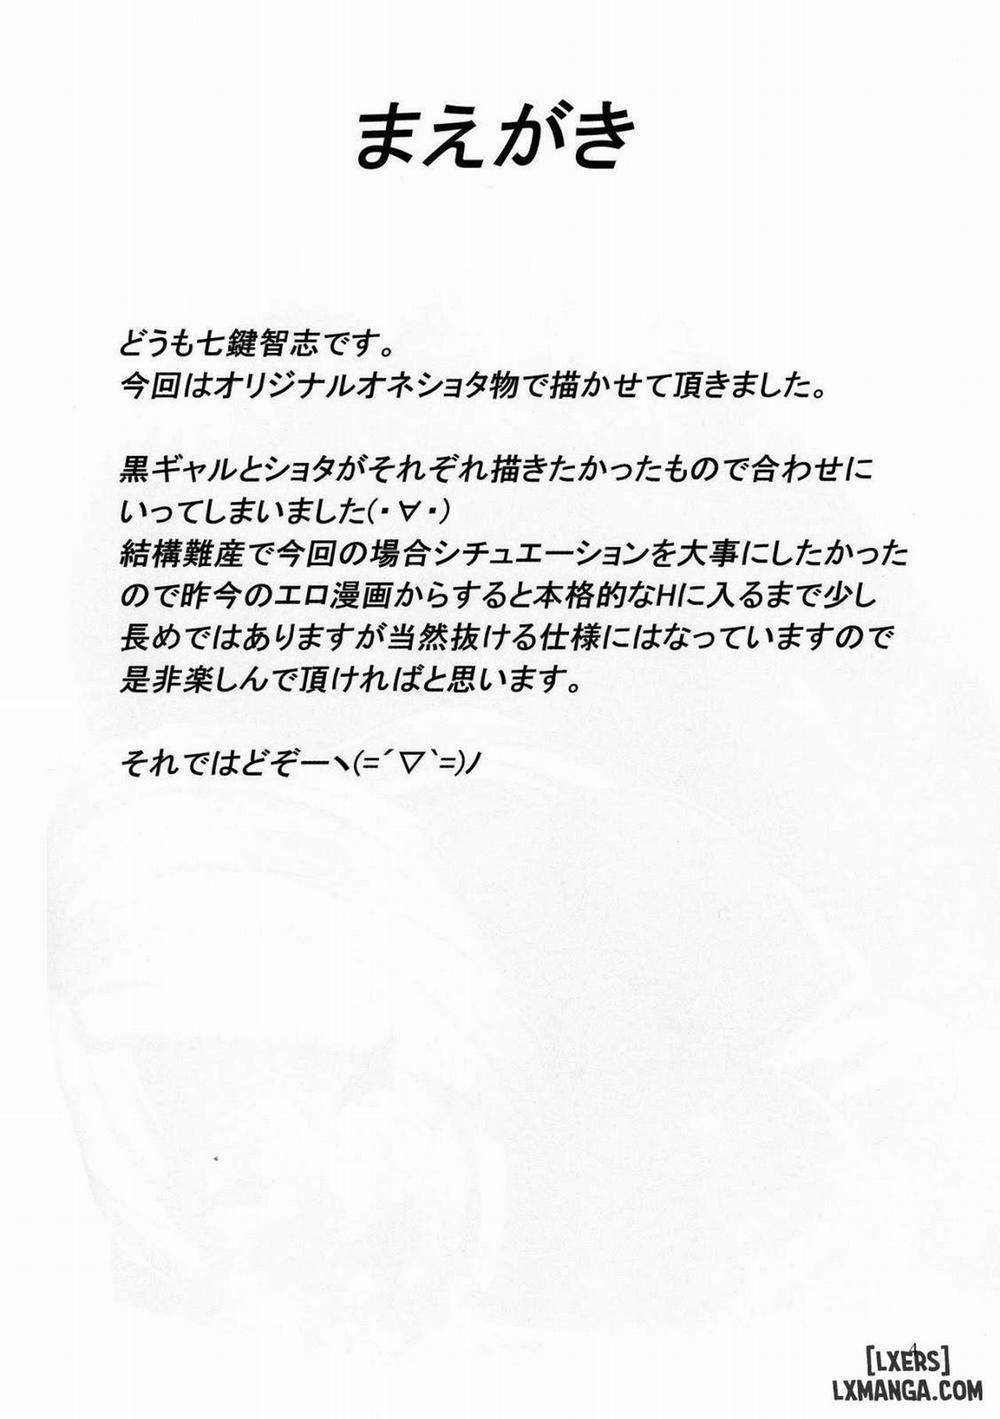 まえがき
どうも七鍵智志です。
今回はオリジナルオネショタ物で描かせて頂きました。
黒ギャルとショタがそれぞれ描きたかったもので合わせに
いってしまいました(・∀・)
結構難産で今回の場合シチュエーションを大事にしたかった
ので昨今のエロ漫画からすると本格的なHに入るまで少し
長めではありますが当然抜ける仕様にはなっていますので
是非楽しんで頂ければと思います。
それではどぞーヽ(=´▽`=)ﾉ
4
[LXERS]
LXMANGA.COM